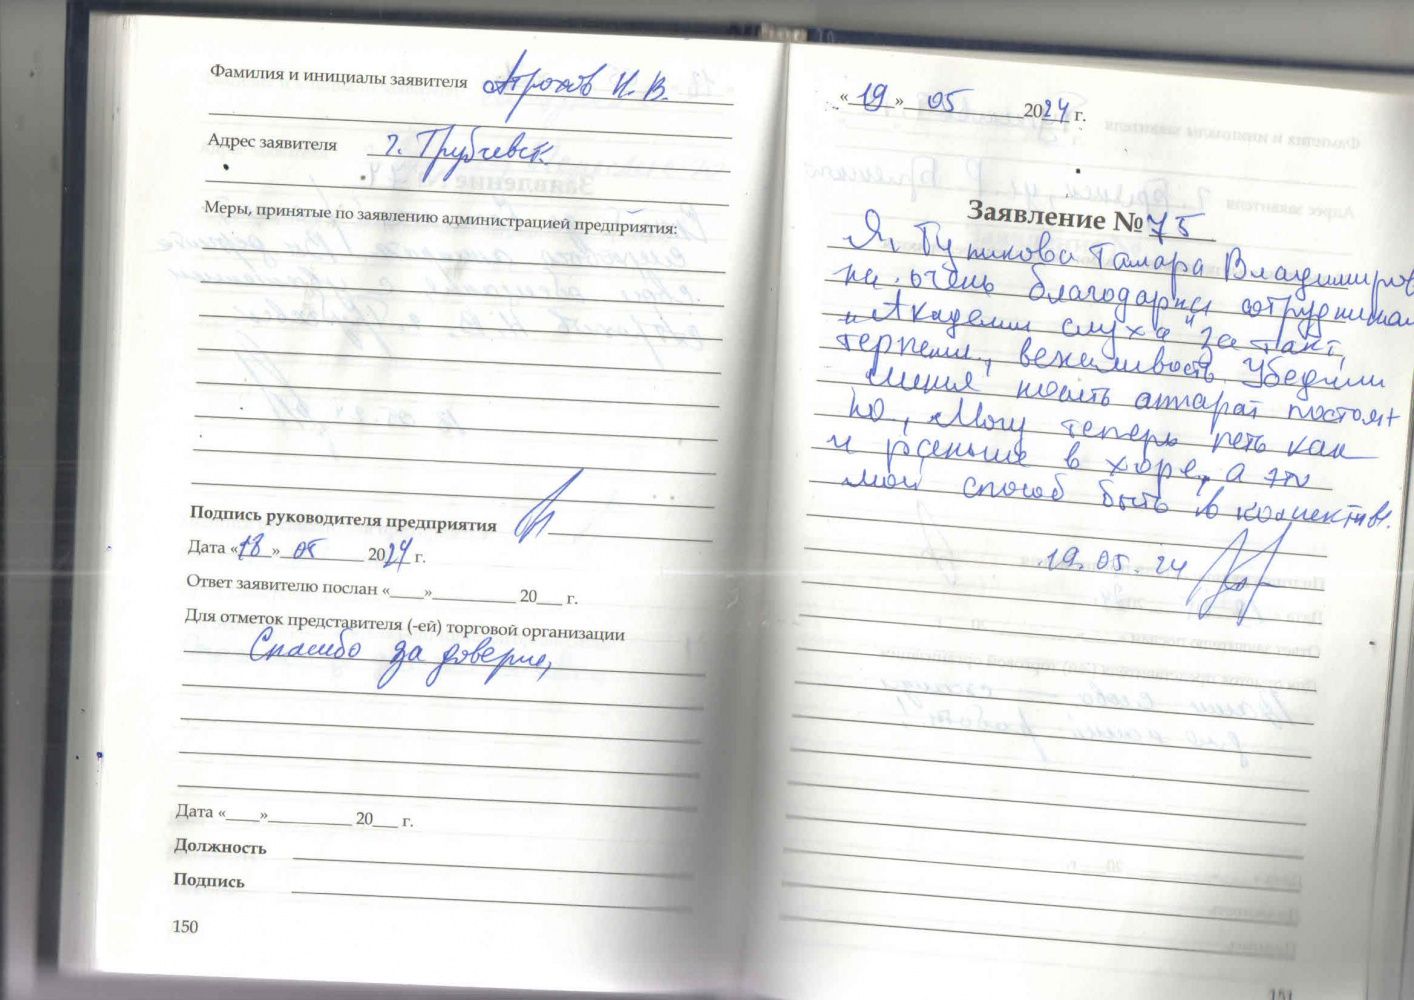 Фамилия и инициалы заявителя Атрохов Н. В.
Адрес заявителя г. Трубчевск.
Меры, принятые по заявлению администрацией предприятия:
Подпись руководителя предприятия
Дата «18» 05 2024 г.
Ответ заявителю послан «____»__________ 20___ г.
Для отметок представителя (-ей) торговой организации
Спасибо за доверие,
Дата «____»__________ 20___ г.
Должность
Подпись
150
«19» 05 2024 г.
Заявление № 75
Я, Тамара Владимиров
на, очень благодарна сотрудникам
"Академии слуха" за такт,
терпение, вежливость. Убедили
меня носить аппарат постоян
но, Могу теперь петь как
и раньше в хоре, а это
мой способ быть в коллективе.
19.05.24
151